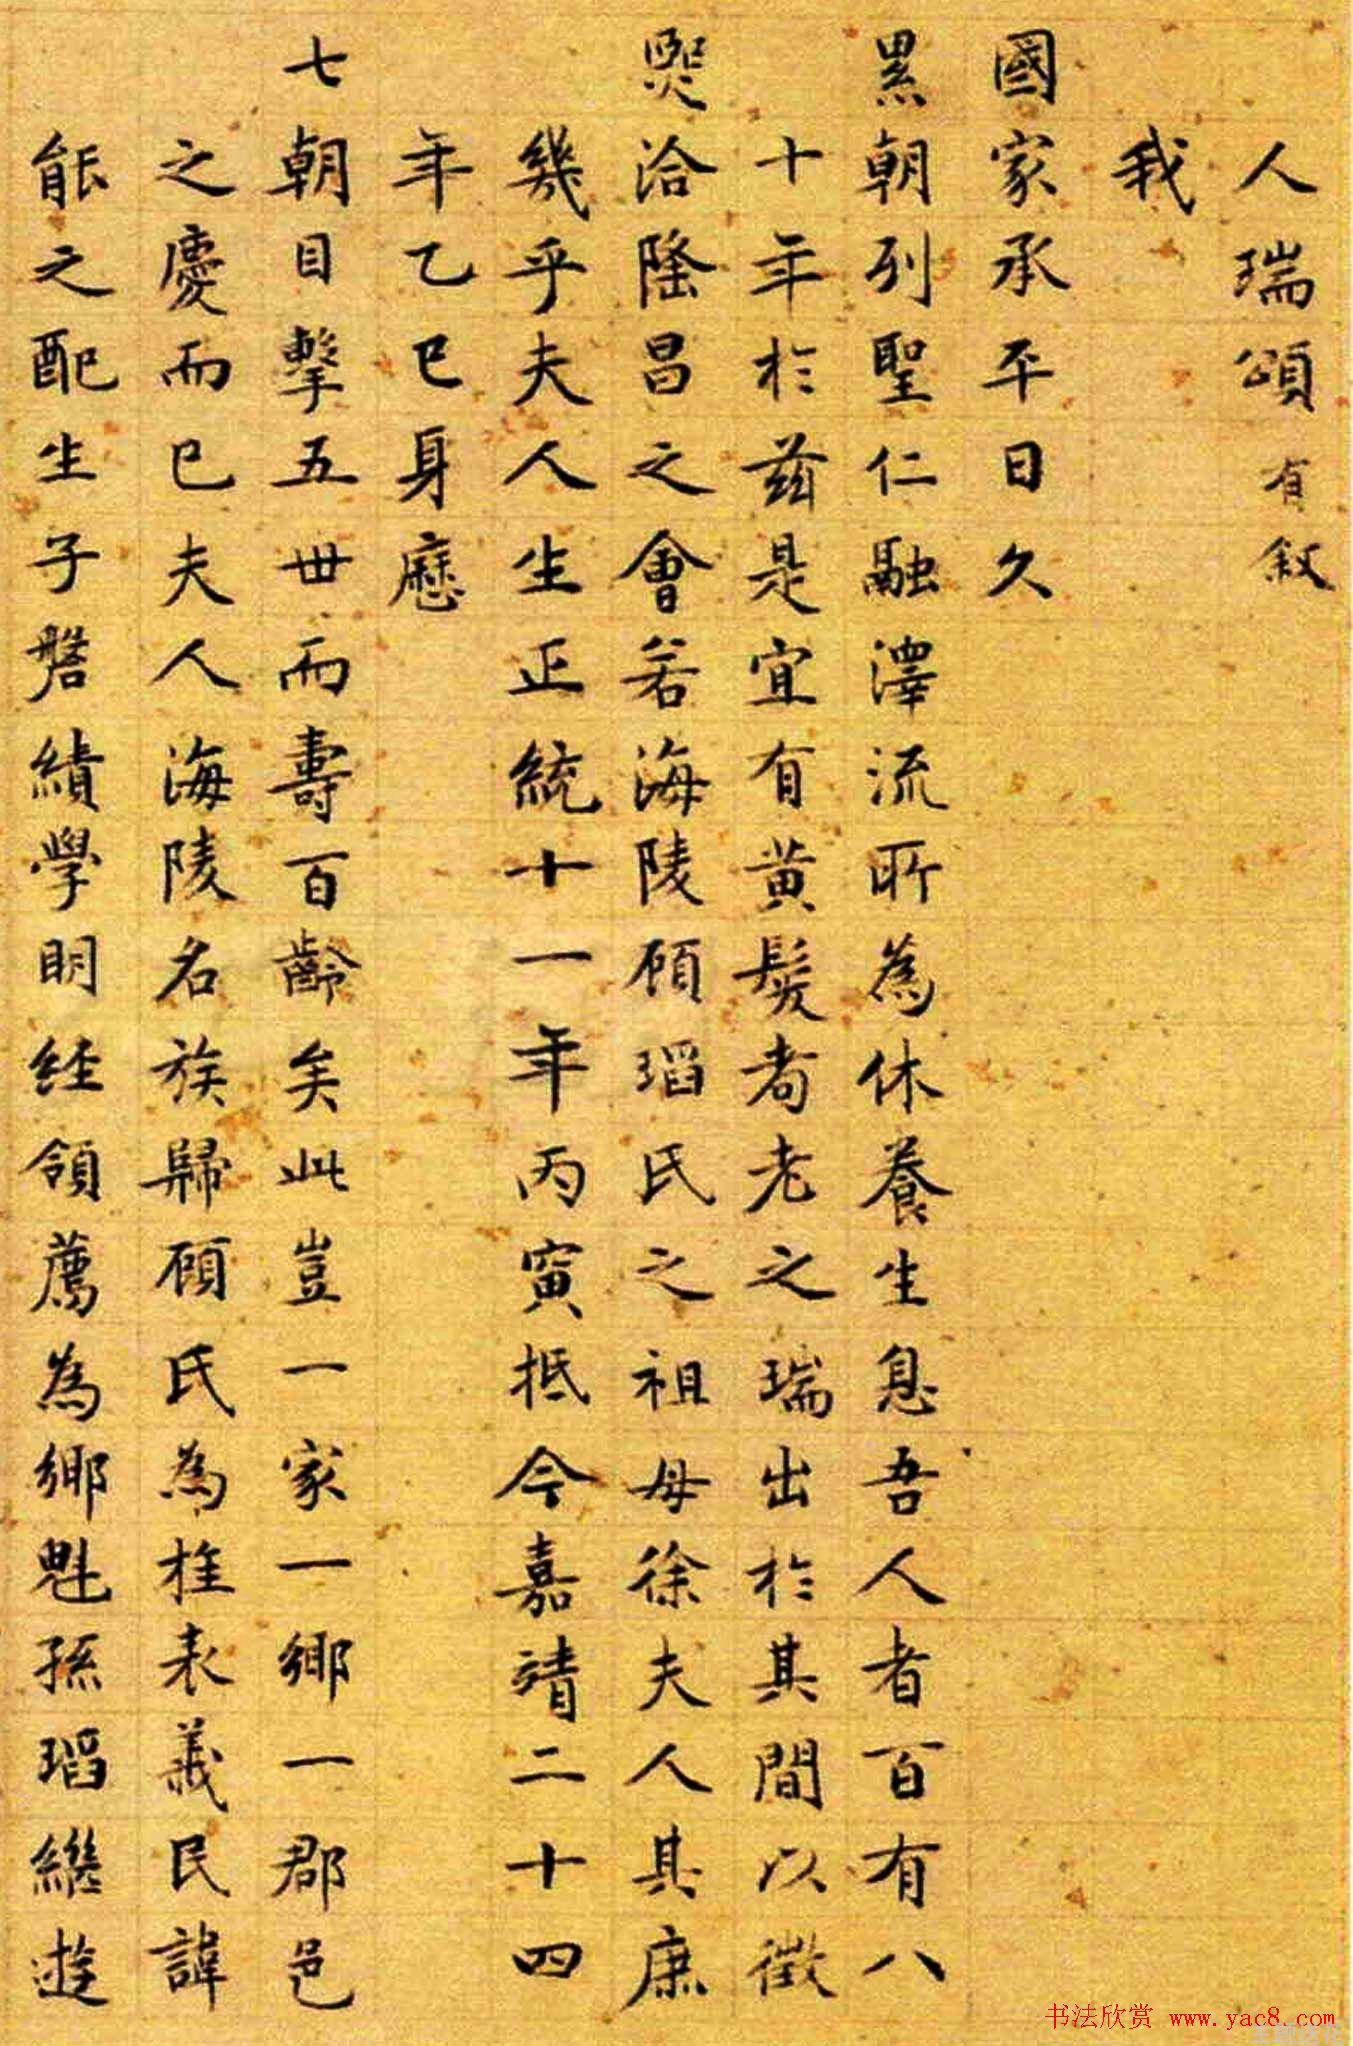 人瑞頌有叙
我
國家承平日久
累朝列聖仁融澤流所為休養生息吾人者百有八
十年於兹是宜有黄髮耇老之瑞出於其間以徵
熙洽隆昌之會若海陵顧瑫氏之祖母徐夫人其庶
幾乎夫人生正統十一年丙寅抵今嘉靖二十四
年乙巳身歷
七朝目擊五世而壽百齡矣此豈一家一鄉一郡邑
之慶而已夫人海陵名族歸顧氏為旌表義民諱
能之配生子磐績學明經領薦為鄉魁孫瑫繼遊
书法欣赏 www.yac8.com